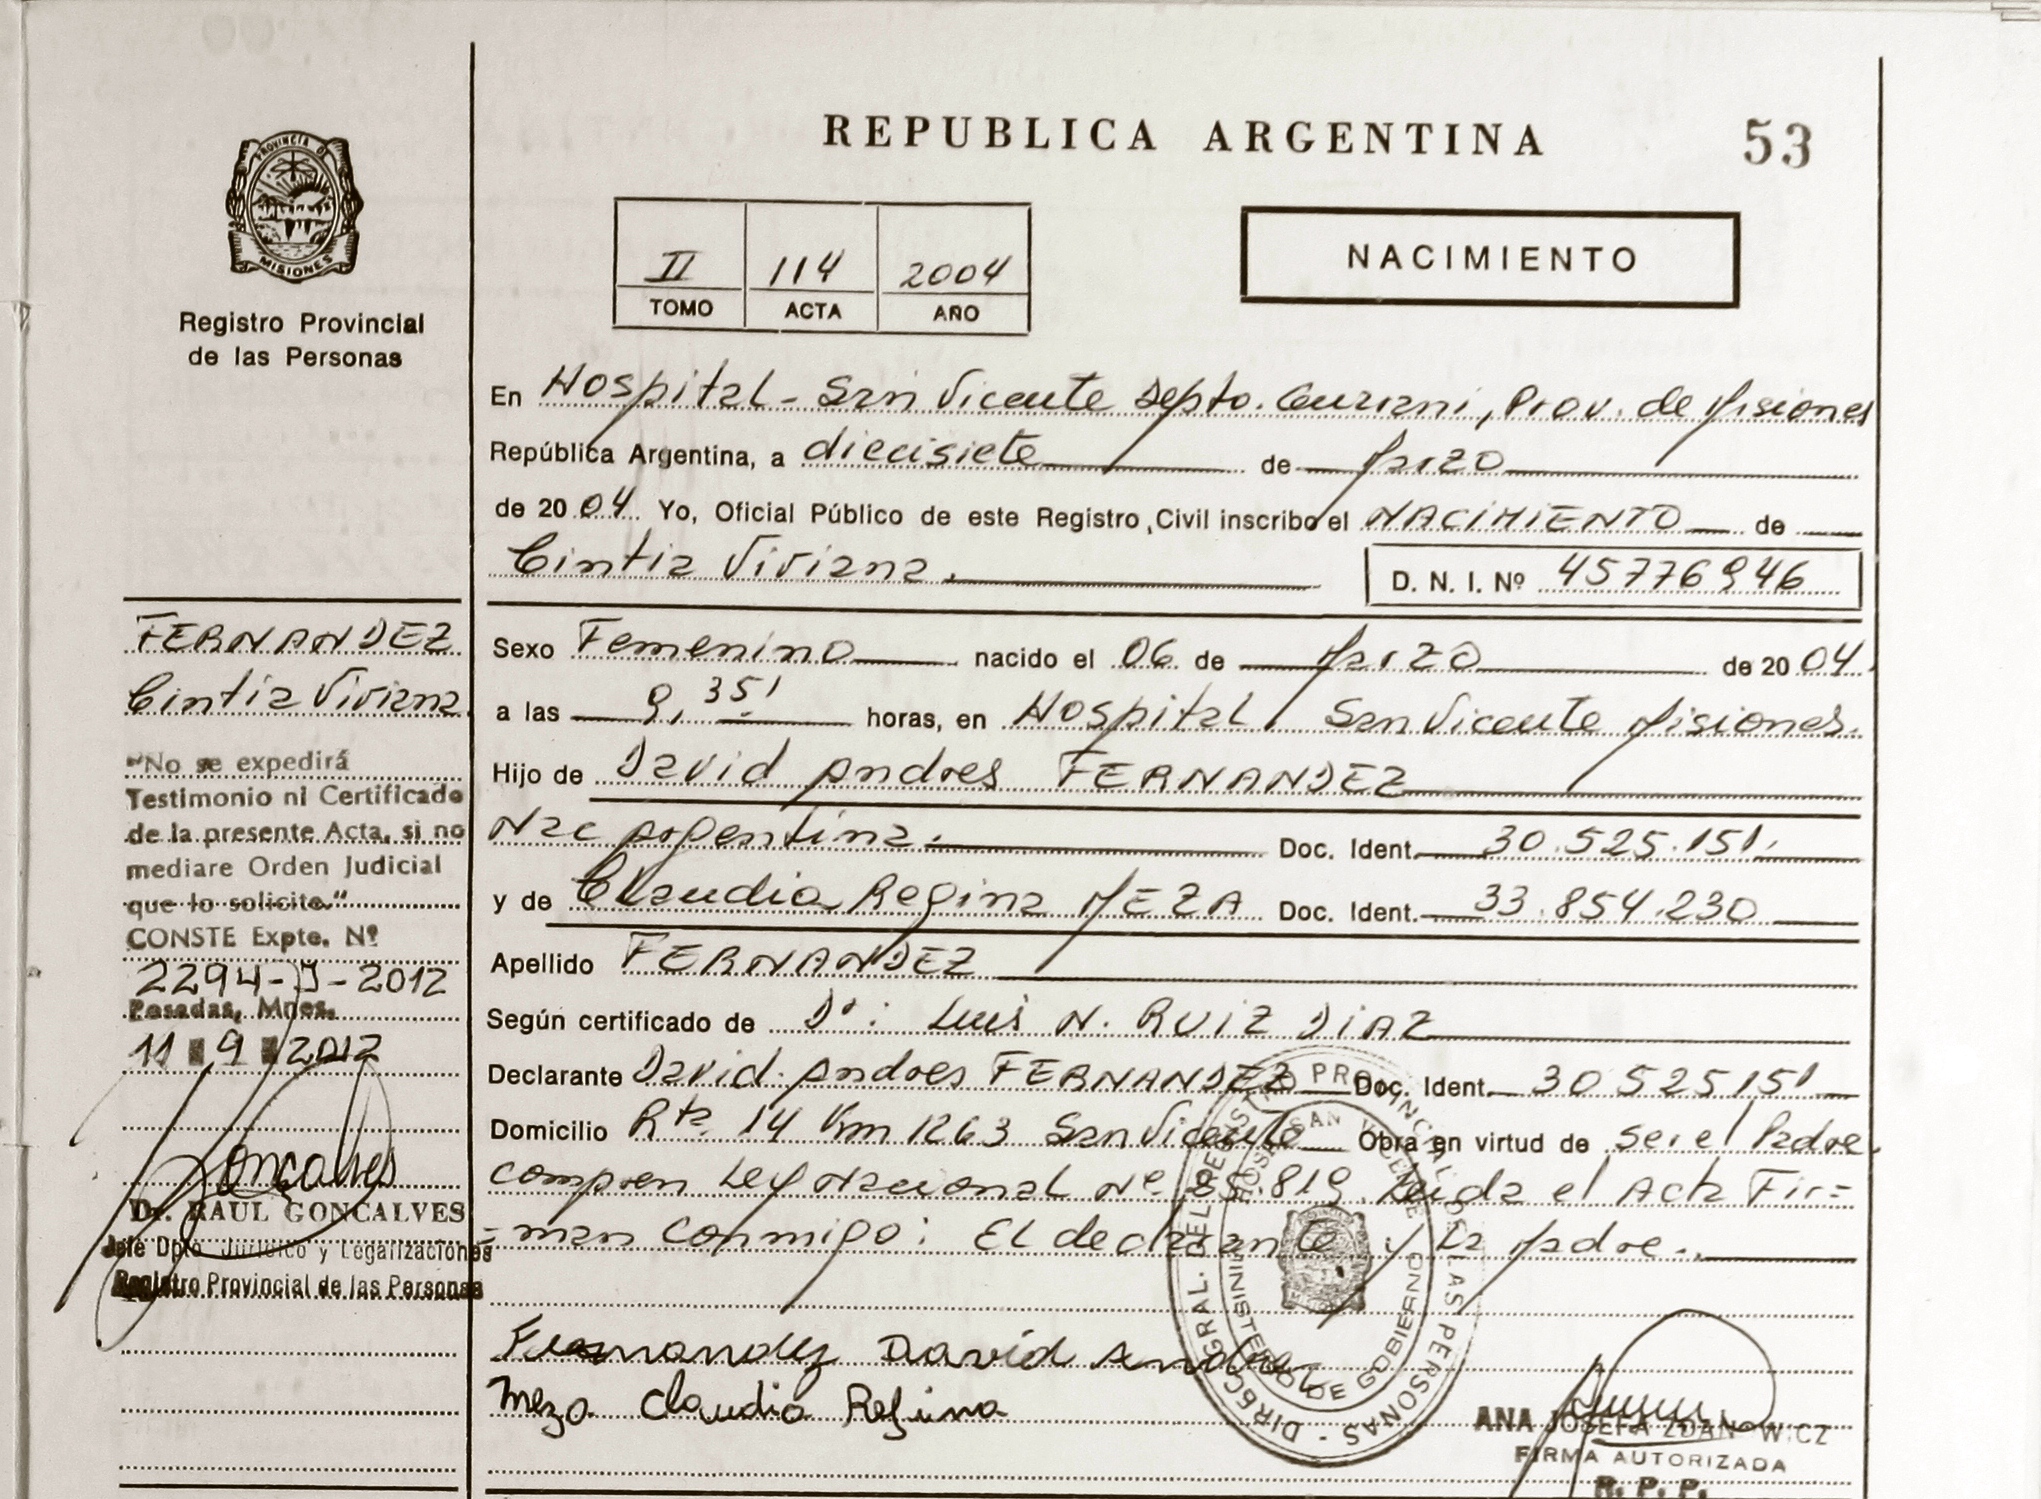 REPUBLICA ARGENTINA
53
PROVINCIA DE
MISIONES
Registro Provincial
de las Personas
II 114 2004
TOMO ACTA AÑO
NACIMIENTO
En Hospital - San Vicente Depto. Guarani, Prov. de Misiones
República Argentina, a diecisiete de Marzo
de 2004 Yo, Oficial Público de este Registro Civil inscribo el NACIMIENTO de
Cintia Viviana. D. N. I. Nº 45776946
FERNANDEZ
Cintia Viviana
"No se expedirá
Testimonio ni Certificado
de la presente Acta, si no
mediare Orden Judicial
que lo solicite."
CONSTE Expte. Nº
2294- -2012
Posadas, Mnes.
11 9 2012
Goncalves
Dr. RAUL GONCALVES
Jefe Dpto Jurídico y Legalizaciones
Registro Provincial de las Personas
Sexo Femenino nacido el 06 de Marzo de 2004.
a las 9,35' horas, en Hospital. San Vicente Misiones.
Hijo de David Andres FERNANDEZ
Nac Argentina. Doc. Ident. 30.525.151.
y de Claudia Regina MEZA Doc. Ident. 33.854.230
Apellido FERNANDEZ
Según certificado de Dr: Luis N. RUIZ DIAZ
Declarante David Andres FERNANDEZ Doc. Ident. 30525151
Domicilio Rta. 14 Km 1263 San Vicente Obra en virtud de ser el Padre
compren Ley Nacional Nº 25.819. Leida el Acta Fir=
=man conmigo: El declarante y la Madre.
Fernandez David Andres
Meza Claudia Regina
DIREC GRAL. DEL REGISTRO PROVINCIAL DE LAS PERSONAS
HOSP. SAN VICENTE
MINISTERIO DE GOBIERNO
ANA JOSEFA ZDANOWICZ
FIRMA AUTORIZADA
R. P. P.